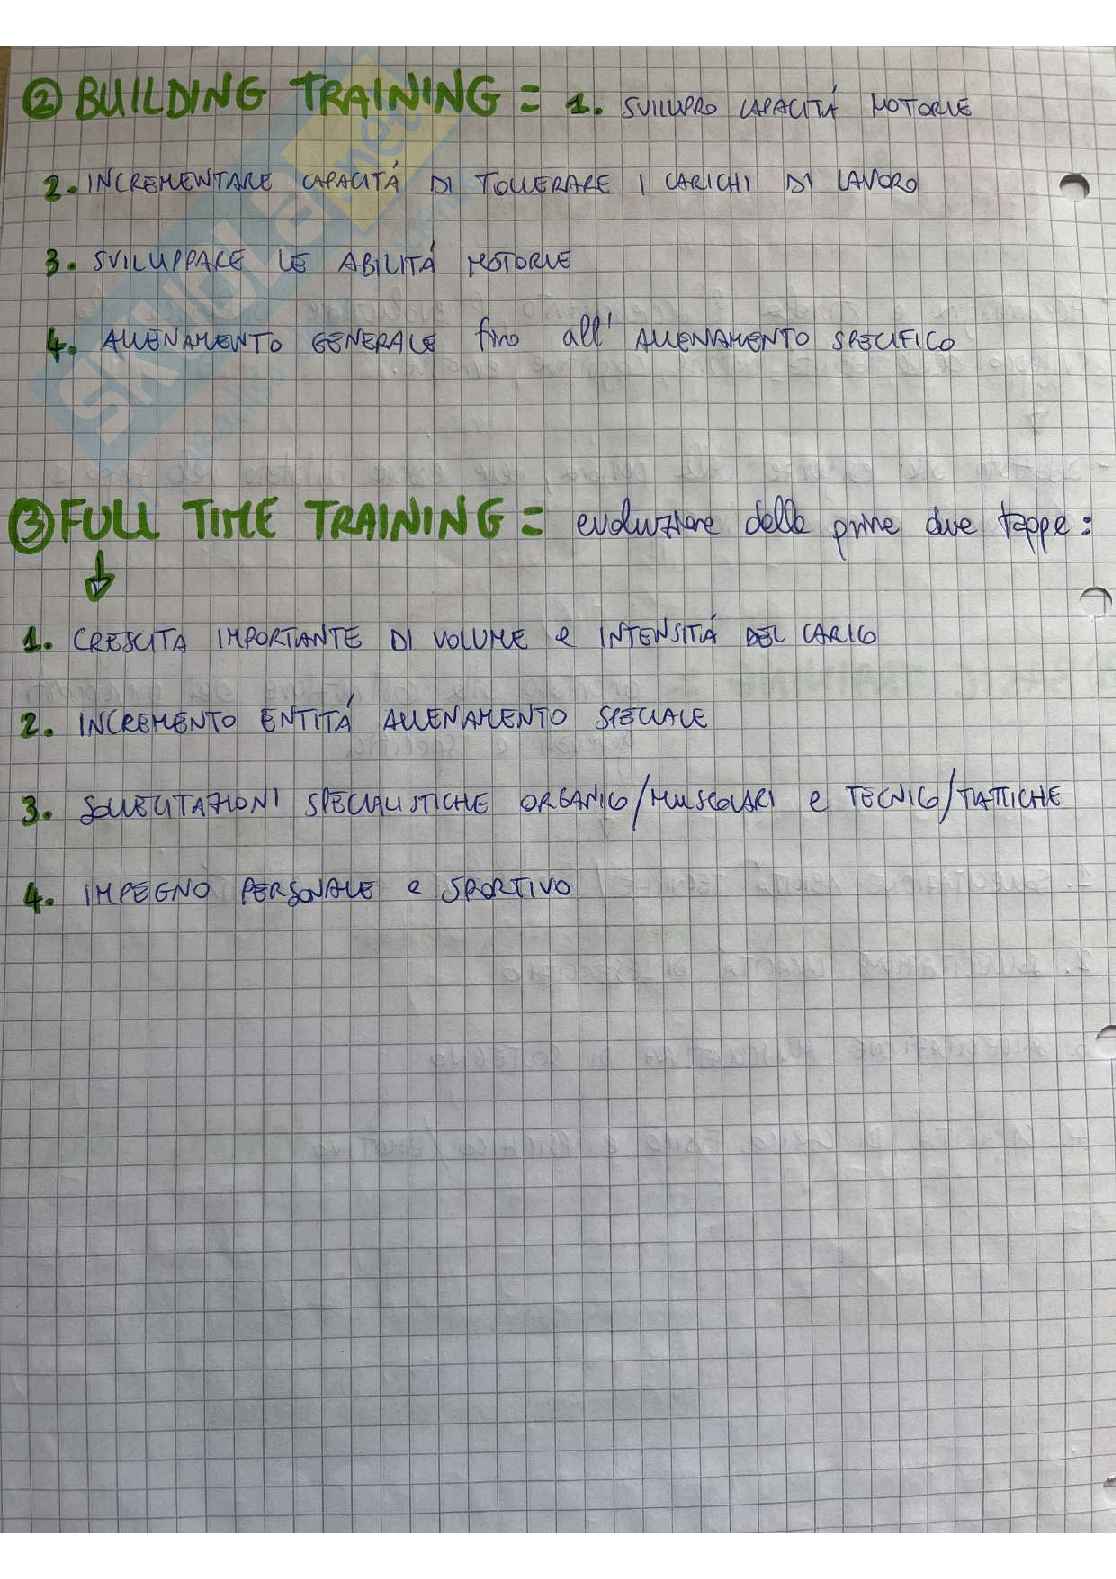 ② BUILDING TRAINING = 1. SVILUPPO CAPACITÁ MOTORIE
2. INCREMENTARE CAPACITÁ DI TOLLERARE I CARICHI DI LAVORO
3. SVILUPPARE LE ABILITÁ MOTORIE
4. ALLENAMENTO GENERALE fino all' ALLENAMENTO SPECIFICO
③ FULL TIME TRAINING = evoluzione delle prime due tappe:
↓
1. CRESCITA IMPORTANTE DI VOLUME e INTENSITÁ DEL CARICO
2. INCREMENTO ENTITÁ ALLENAMENTO SPECIALE
3. SOLLECITAZIONI SPECIALISTICHE ORGANICO/MUSCOLARI e TECNICO/TATTICHE
4. IMPEGNO PERSONALE e SPORTIVO
SKUOLA.net